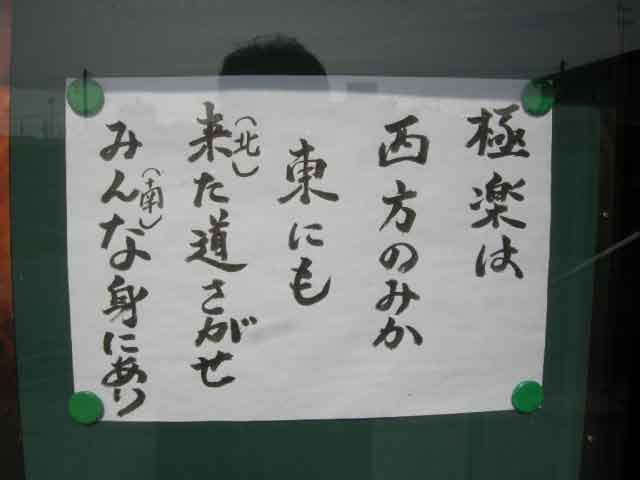 極楽は
西方のみか
東にも
来た(北)道さがせ
みんな(南)身にあり